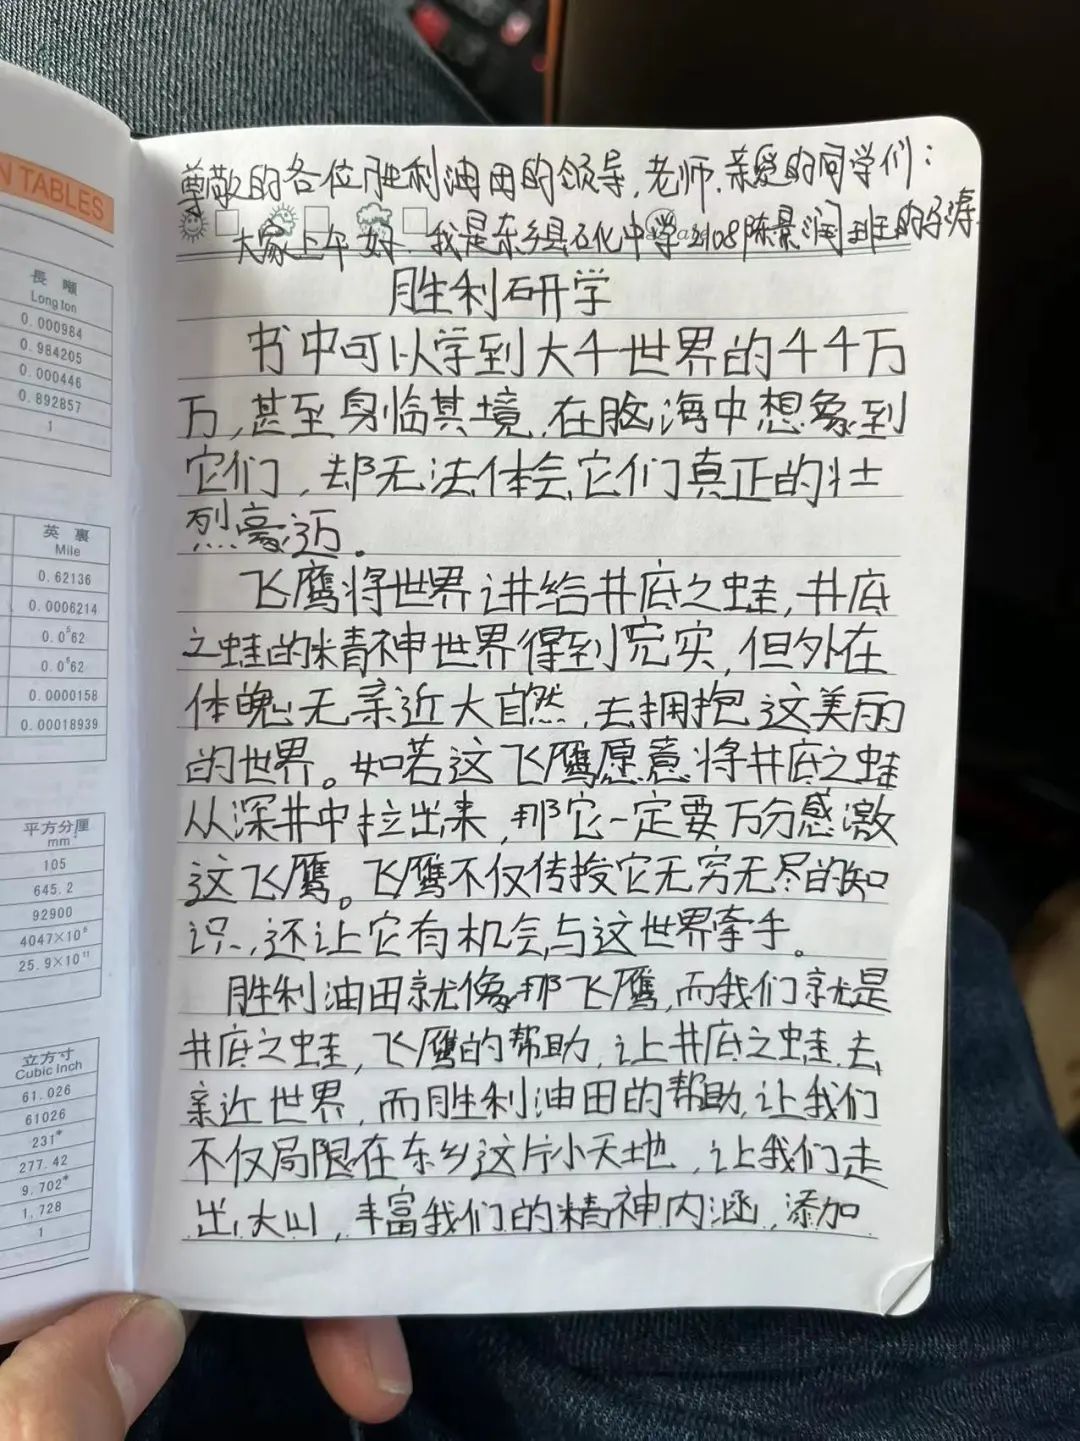 N TABLES
長 噸
Long ton
0.000984
0.984205
0.000446
0.892857
1
英 裏
Mile
0.62136
0.0006214
0.0⁵62
0.0⁶62
0.0000158
0.00018939
平方分厘
mm²
105
645.2
92900
4047×10⁶
25.9×10¹¹
立方寸
Cubic Inch
61.026
61026
231*
277.42
9.702*
1,728
1
尊敬的各位胜利油田的领导,老师.亲爱的同学们:
大家上午好 我是东乡县石化中学2108陈景润班的
胜利研学
书中可以学到大千世界的千千万
万,甚至身临其境.在脑海中想象到
它们,却无法体会它们真正的壮
烈豪迈.
飞鹰将世界讲给井底之蛙,井底
之蛙的精神世界得到完实,但外在
体魄无亲近大自然,去拥抱这美丽
的世界。如若这飞鹰愿意将井底之蛙
从深井中拉出来,那它一定要万分感激
这飞鹰。飞鹰不仅传授它无穷无尽的知
识,还让它有机会与这世界牵手。
胜利油田就像那飞鹰,而我们就是
井底之蛙,飞鹰的帮助,让井底之蛙去
亲近世界,而胜利油田的帮助,让我们
不仅局限在东乡这片小天地,让我们走
出大山,丰富我们的精神内涵,添加